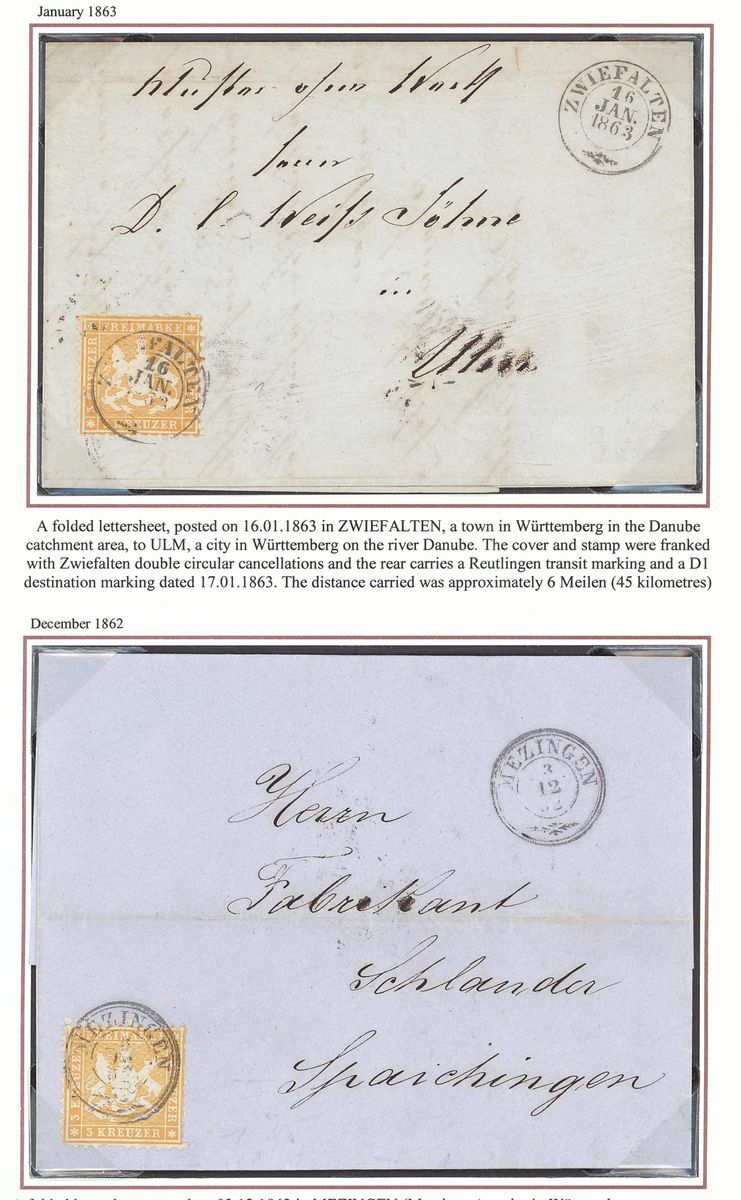 January 1863
ZWIEFALTEN
16
JAN.
1863
D. C. Weiß Söhne
in
Ulm
FREIMARKE
3 KREUZER
ZWIEFALTEN
16
JAN.
KREUZER
A folded lettersheet, posted on 16.01.1863 in ZWIEFALTEN, a town in Württemberg in the Danube
catchment area, to ULM, a city in Württemberg on the river Danube. The cover and stamp were franked
with Zwiefalten double circular cancellations and the rear carries a Reutlingen transit marking and a D1
destination marking dated 17.01.1863. The distance carried was approximately 6 Meilen (45 kilometres)
December 1862
MEZINGEN
3
12
62
Herrn
Fabrikant
Schlander
Spaichingen
MEZINGEN
3 KREUZER
3 KREUZER